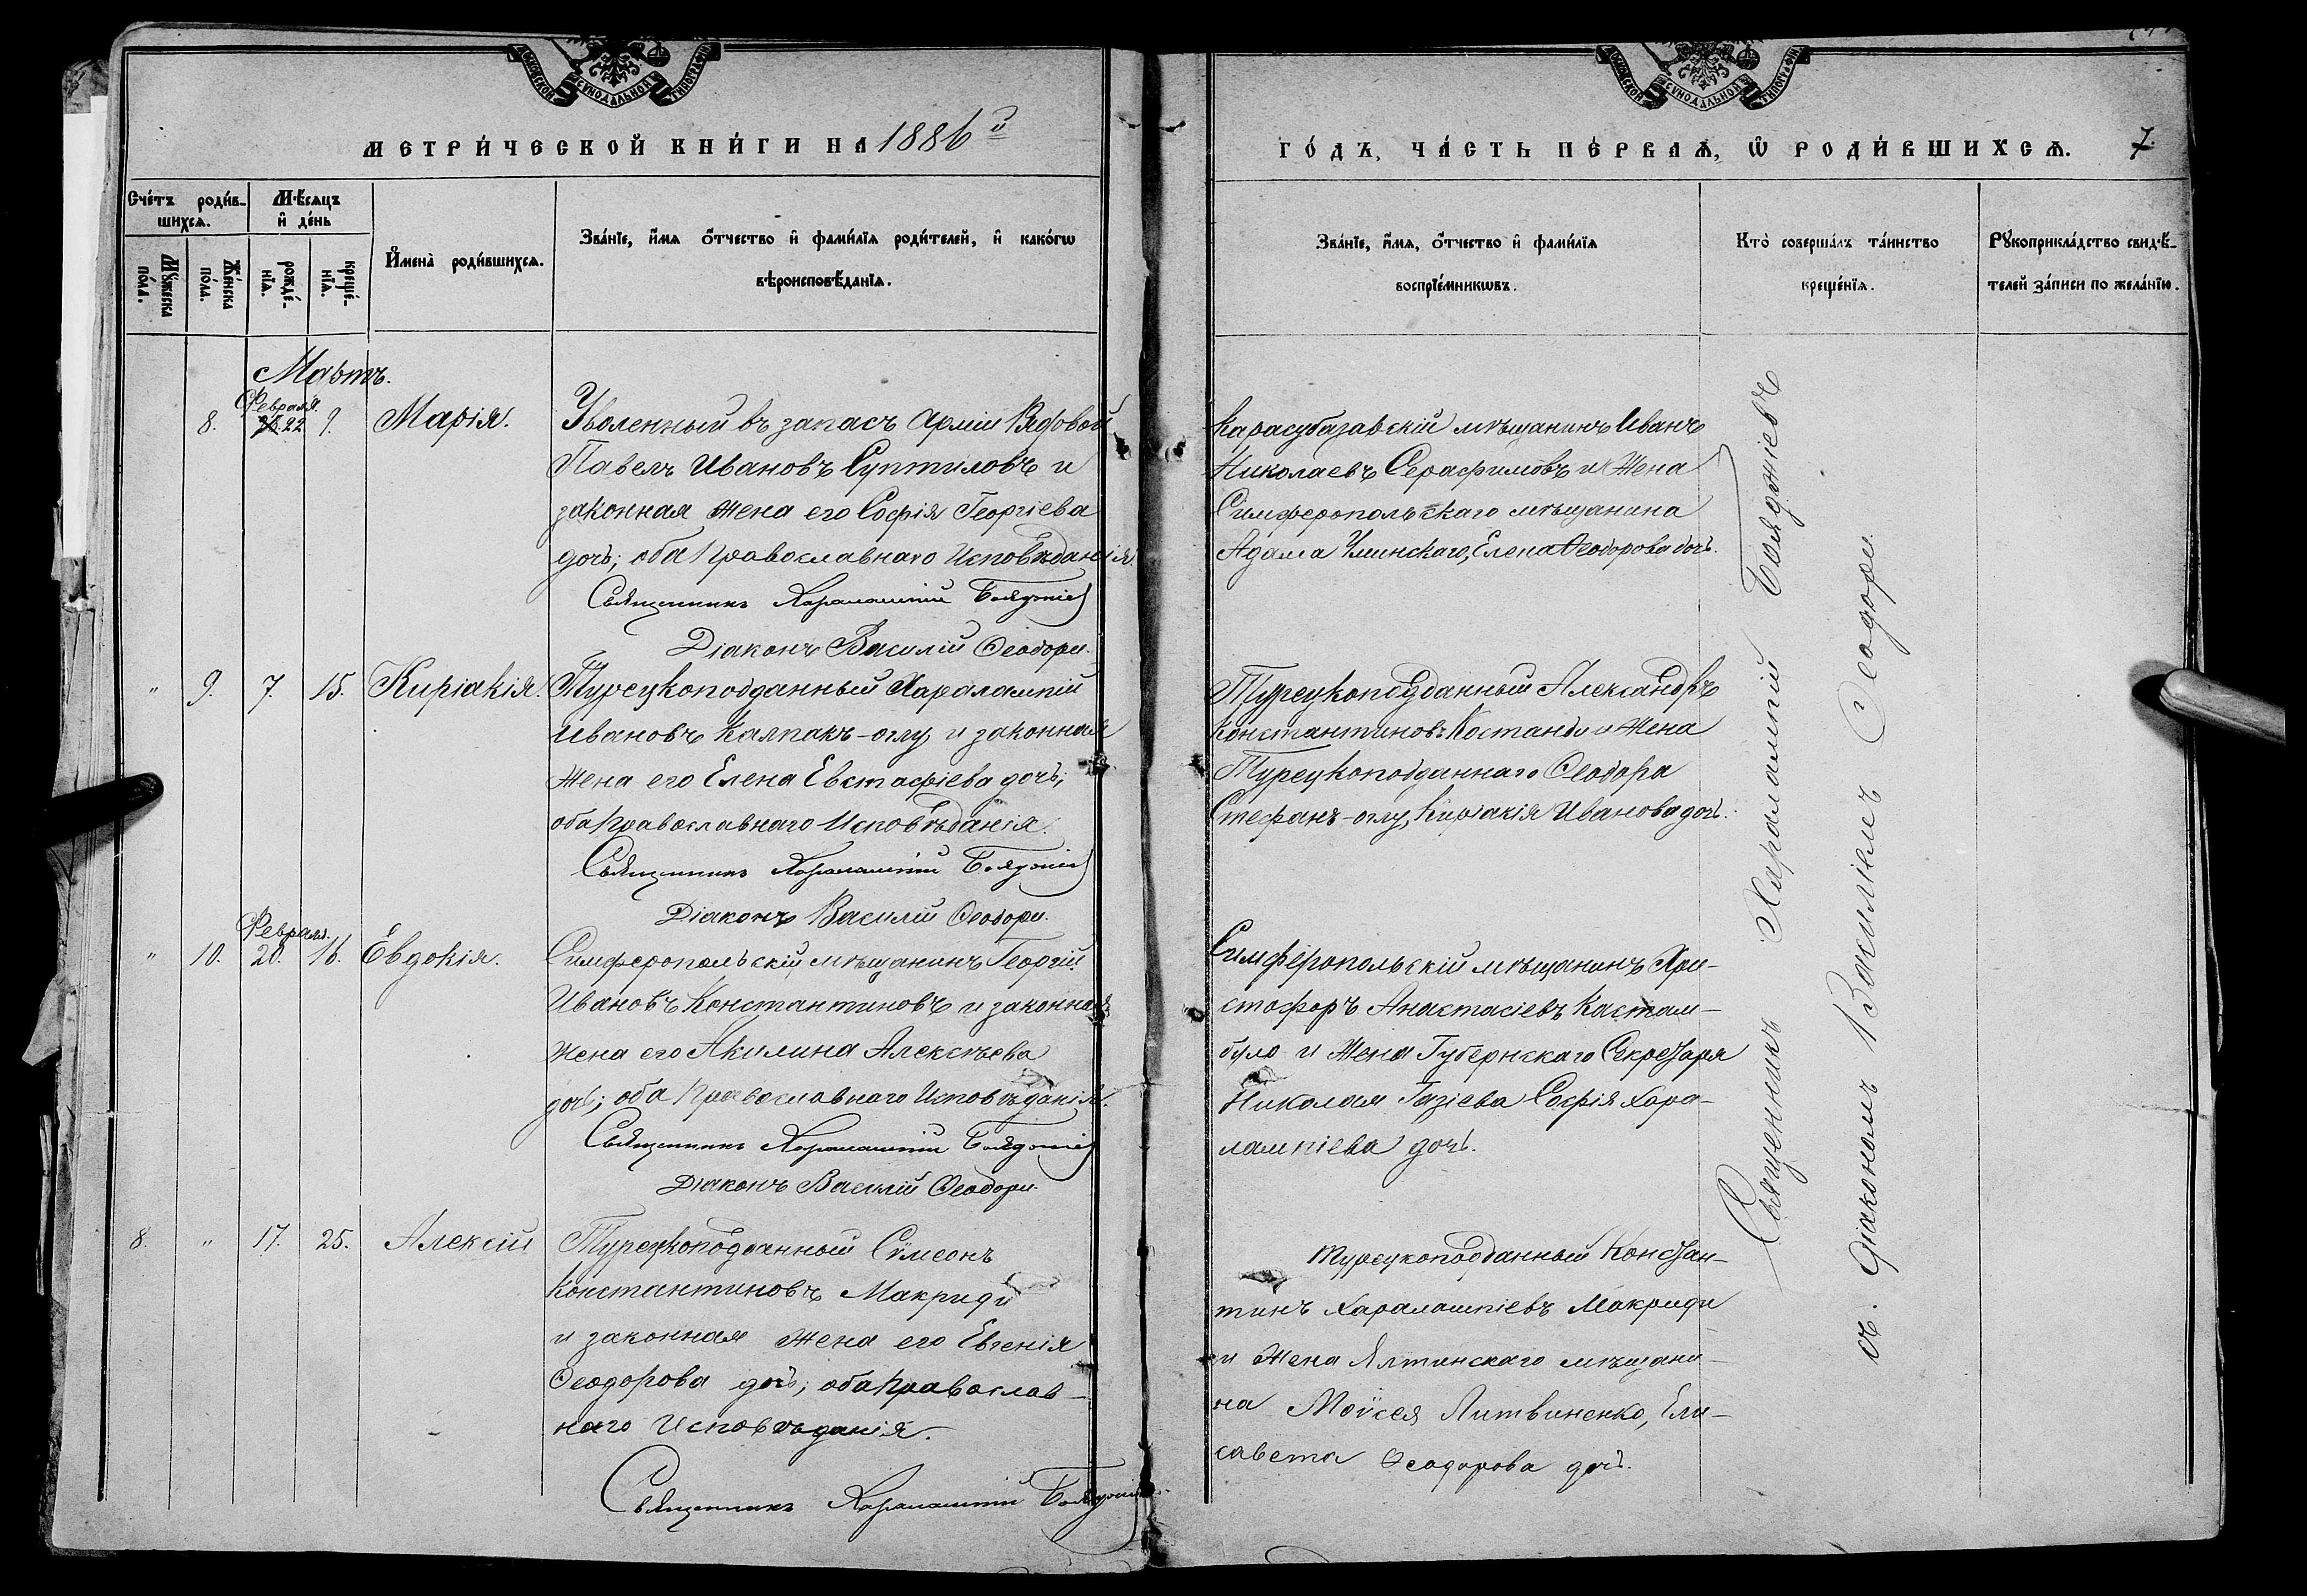 МОСКОВСКОЙ СУНОДАЛЬНОЙ ТИПОГРАФІИ
МЕТРИ́ЧЕСКОЙ КНИ́ГИ НА 1886 й
Сче́тъ роди́в-
шихсѧ.
Мꙋ́жеска
по́ла.
Же́нска
по́ла.
Мѣ́сѧцъ
и҆ де́нь
рожде́-
нїѧ.
креще́-
нїѧ.
И҆мена̀ роди́вшихсѧ.
Зва́нїе, и҆́мѧ ѻ҆́тчество и҆ фами́лїѧ роди́телей, и҆ како́гѡ
вѣроисповѣ́данїѧ.
Мартъ.
Февраля.
8. 22 9. Марія.
Уволенный въ запасъ Арміи Рядовой
Павелъ Ивановъ Суптиловъ и
законная жена его Софія Георгіева
дочь; оба Православнаго Исповѣданія.
Священникъ Харалампій Бояджіев
Діаконъ Василій Ѳеодори.
" 9. 7. 15. Киріакія.
Турецкоподданный Харалампій
Ивановъ Калпакъ-оглу и законная
жена его Елена Евстафіева дочь;
оба Православнаго Исповѣданія.
Священникъ Харалампій Бояджіев
Діаконъ Василій Ѳеодори.
Февраля.
" 10. 20. 16. Евдокія.
Симферопольскій мѣщанинъ Георгій
Ивановъ Константиновъ и законная
жена его Акилина Алексѣева
дочь; оба Православнаго Исповѣданія.
Священникъ Харалампій Бояджіев
Діаконъ Василій Ѳеодори.
8. " 17. 25. Алексій
Турецкоподданный Сѵмеонъ
Константиновъ Макриди
и законная жена его Евгенія
Ѳеодорова дочь; оба Православ-
наго Исповѣданія.
Священникъ Харалампій Бояджіев
МОСКОВСКОЙ СУНОДАЛЬНОЙ ТИПОГРАФІИ
ГО́ДЪ, ЧА́СТЬ ПЕ́РВАѦ, Ѡ҆ РОДИ́ВШИХСѦ. 7.
Зва́нїе, и҆́мѧ, ѻ҆́тчество и҆ фами́лїѧ
воспрїе́мникѡвъ.
Кто̀ соверша́лъ та́инство
креще́нїѧ.
Рꙋкоприкла́дство свидѣ́-
телей за́писи по жела́нїю.
Карасубазарскій мѣщанинъ Иванъ
Николаевъ Серафимовъ и жена
Симферопольскаго мѣщанина
Адама Улинскаго, Елена Ѳеодорова дочь.
Турецкоподданный Александръ
Константиновъ Костанди и жена
Турецкоподданнаго Ѳеодора
Стефанъ-оглу, Киріакія Иванова дочь.
Симферопольскій мѣщанинъ Хри-
стофоръ Анастасіевъ Кастам-
було и жена Губернскаго Секретаря
Николая Газіева Софія Хара-
лампіева дочь.
Турецкоподданный Констан-
тинъ Харалампіевъ Макриди
и жена Ялтинскаго мѣщани-
на Моѵсея Литвиненко, Ели-
савета Ѳеодорова дочь.
Священникъ Харалампій Бояджіевъ
съ Діакономъ Василіемъ Ѳеодори.